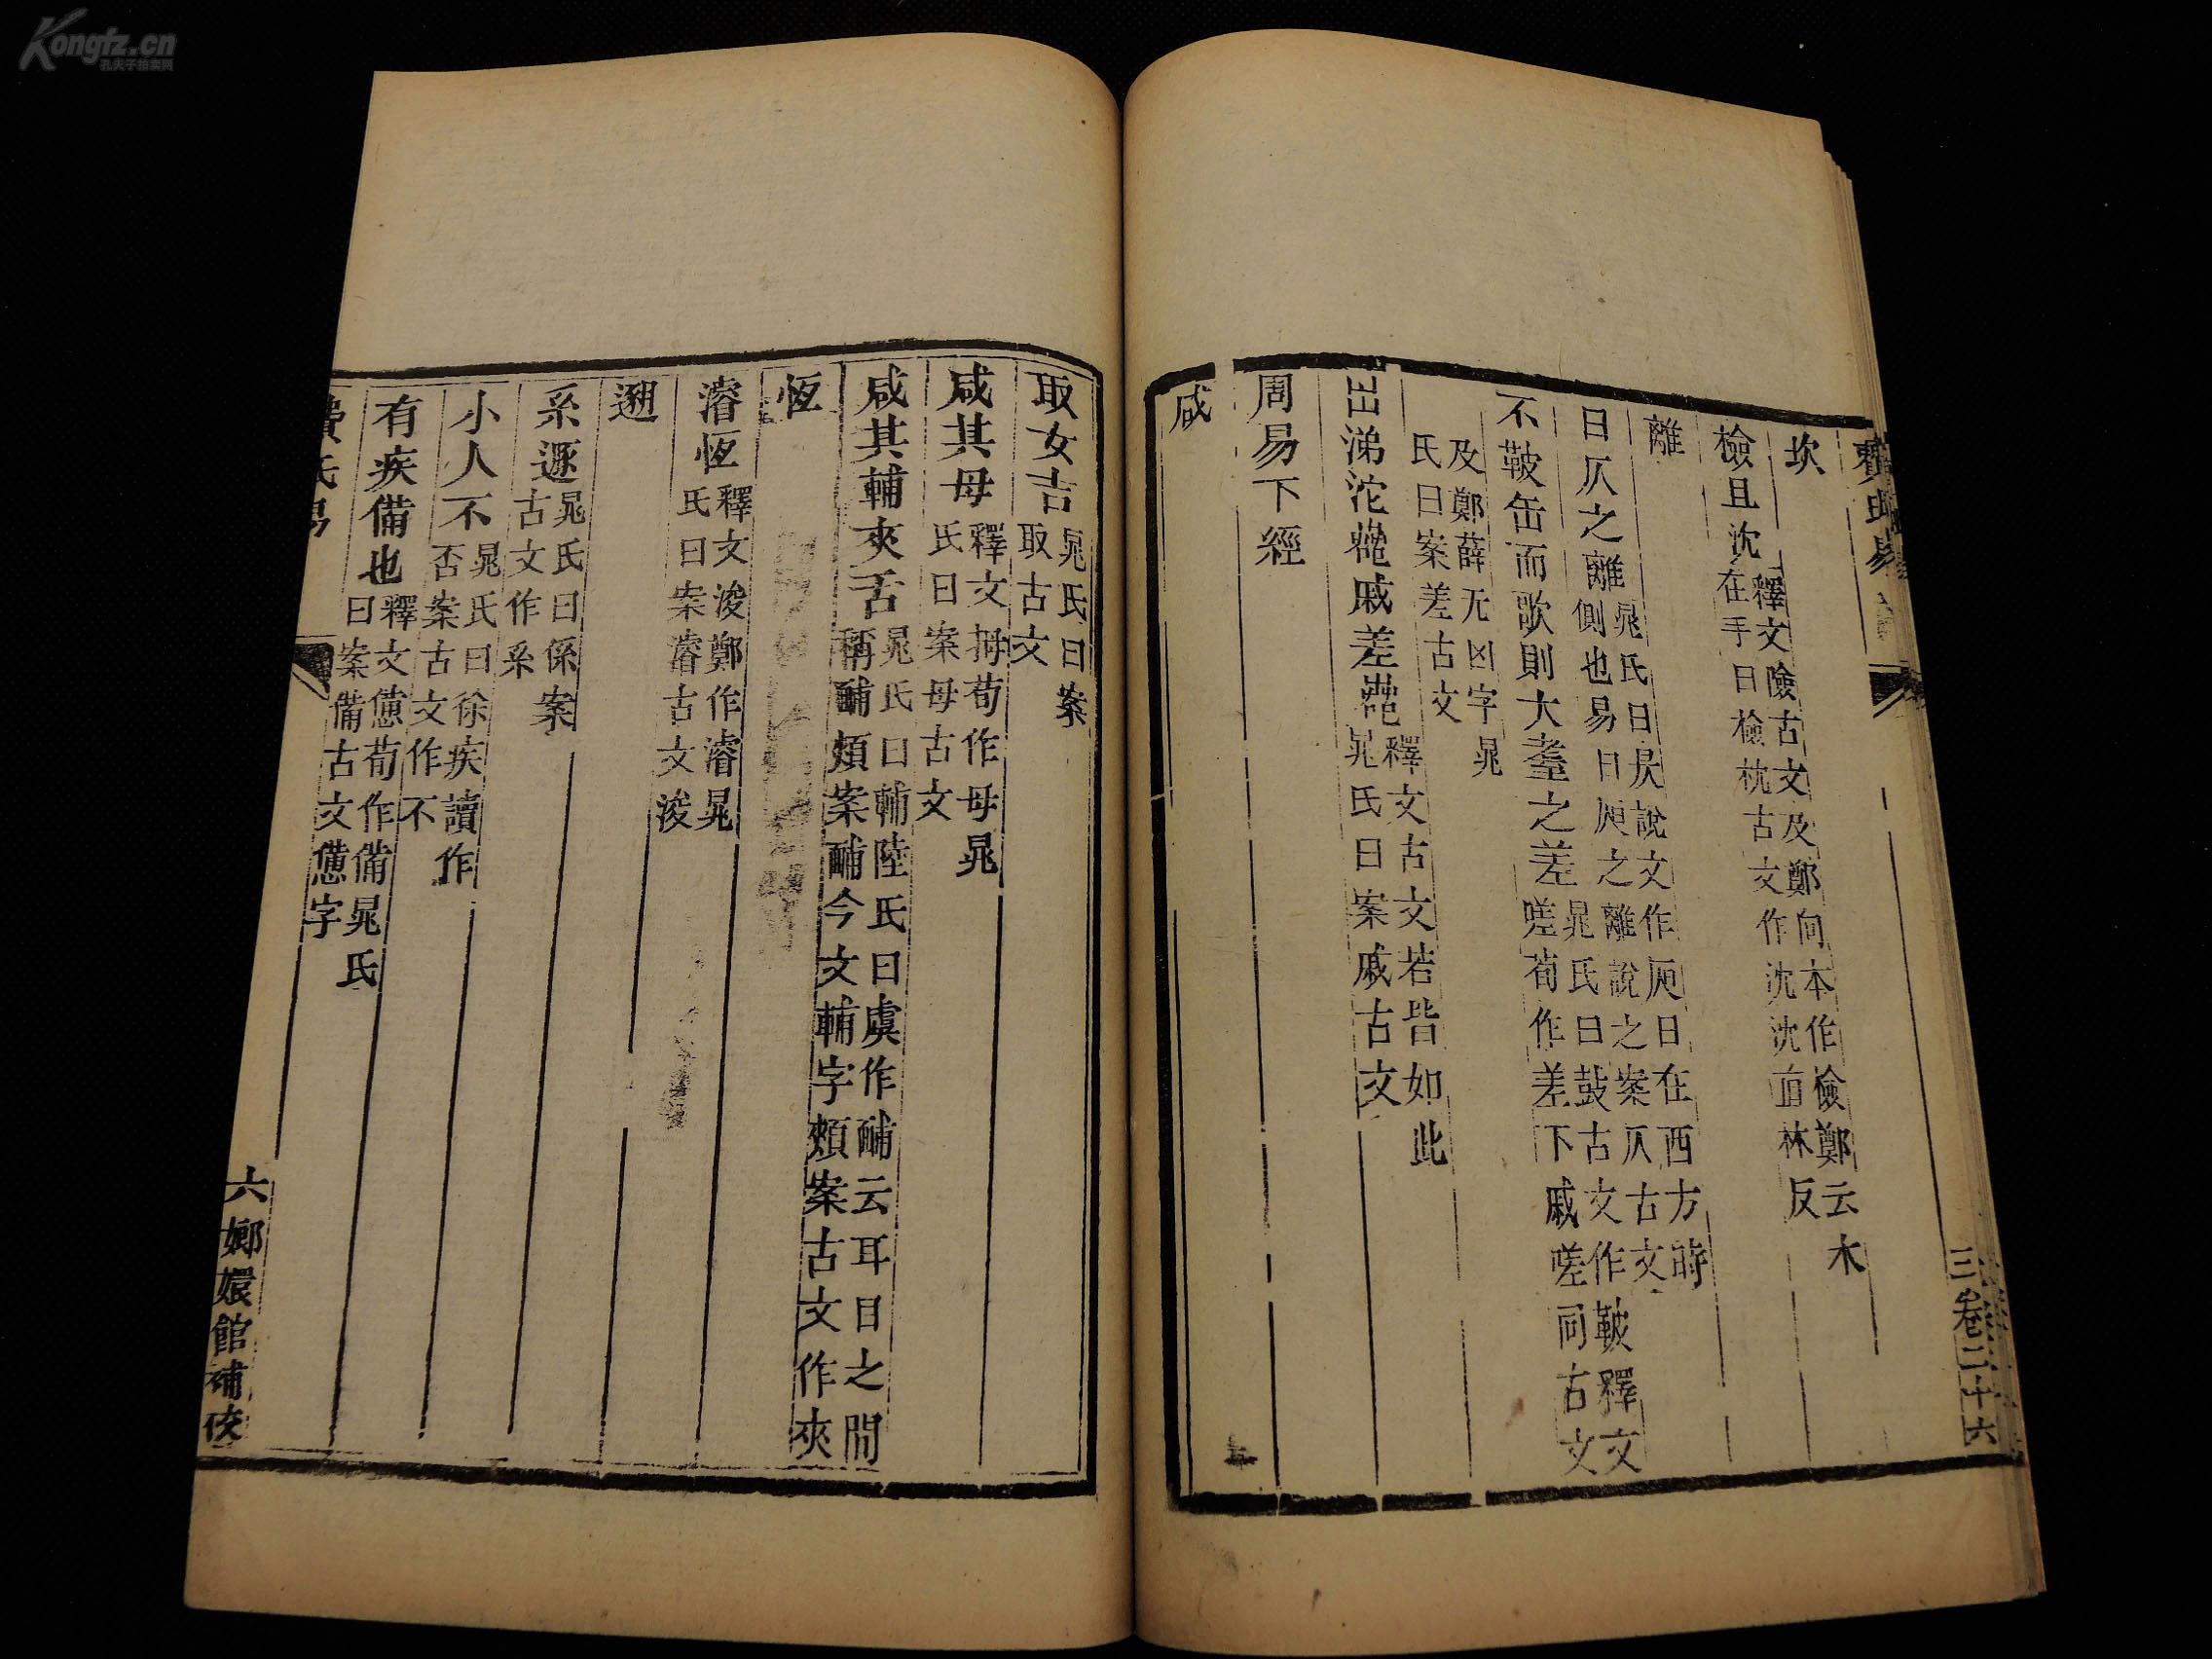 Kongfz.cn
孔夫子拍卖网
費氏易
三卷二十六
坎
檢且沈釋文險古文及鄭向本作檢鄭云木
在手曰檢枕古文作沈沈直林反
離
日仄之離晁氏曰昃說文作𣅔日在西方時
側也易曰𣅔之離說之案仄古文
不鞁缶而歌則大耊之差晁氏曰鼓古文作鞁釋文
嗟荀作差下戚嗟同古文
及鄭薛无凶字晁
氏曰案差古文
出涕沱戚差釋文古文若皆如此
晁氏曰案戚古文
周易下經
咸
取女吉晁氏曰案
取古文
咸其母釋文拇荀作母晁
氏曰案母古文
咸其輔夾舌晁氏曰輔陸氏曰虞作䩉云耳目之間
稱䩉頰案䩉今文輔字頰案古文作夾
恆
濬恆釋文浚鄭作濬晁
氏曰案濬古文浚
遯
系遯晁氏曰係案
古文作系
小人不晁氏曰徐疾讀作
否案古文作不
有疾備也釋文憊荀作備晁氏
曰案備古文憊字
費氏易
六 嫏嬛館補校